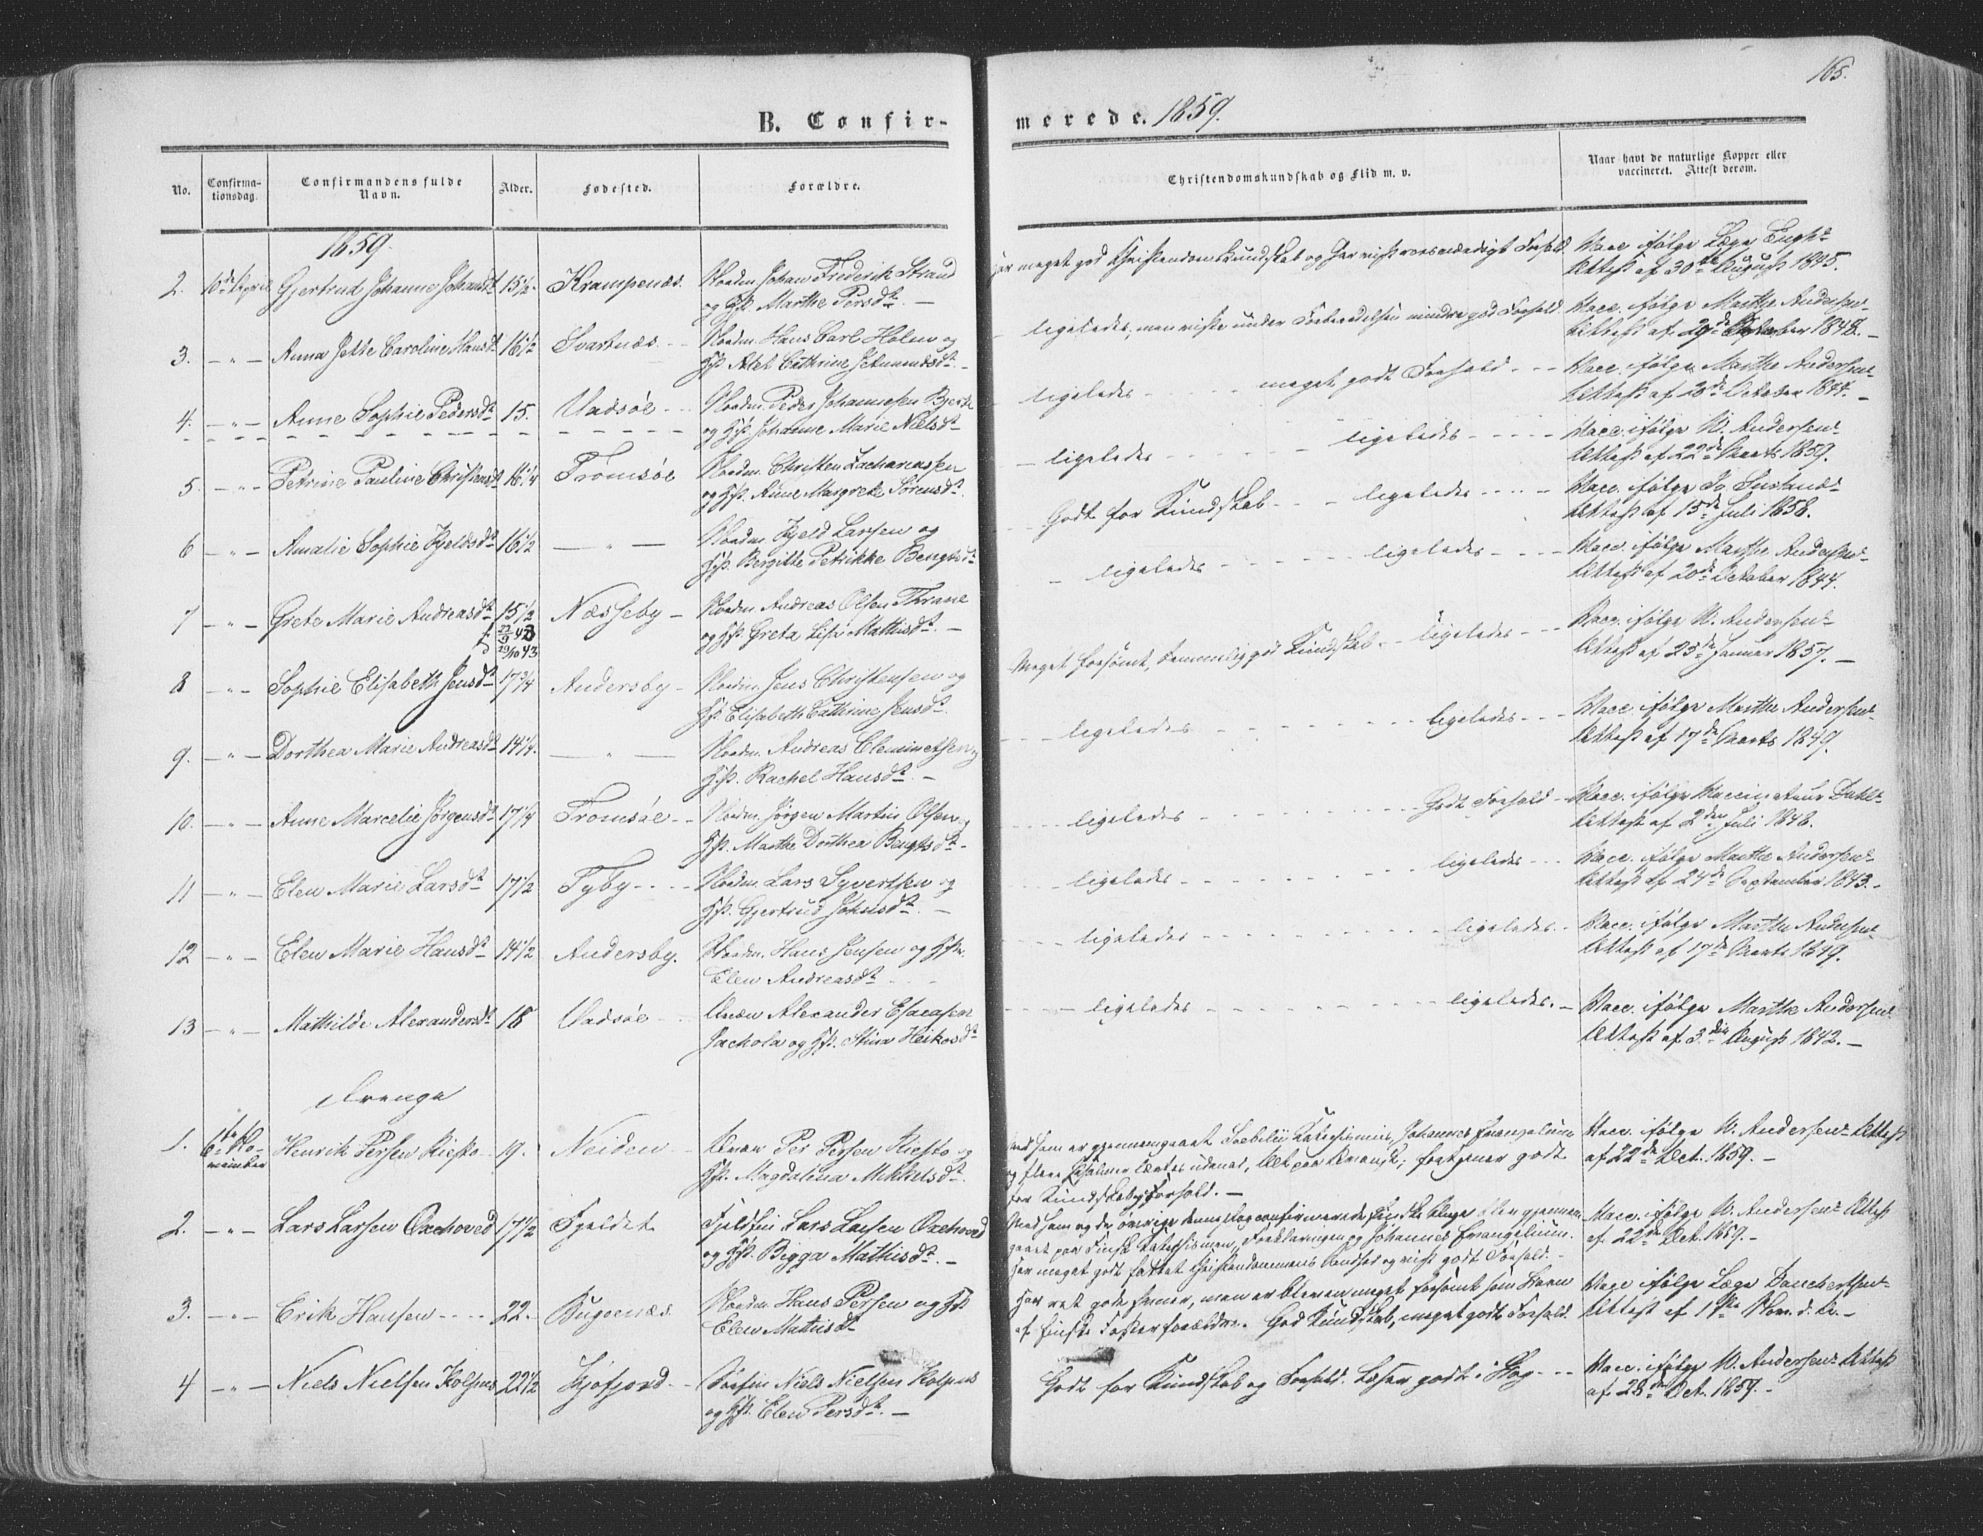 165.
B. Confir-
merede. 1859.
No.
Confirma-
tionsdag.
Confirmandens fulde
Navn.
Alder.
Fødested.
Forældre.
Christendomskundskab og Flid m. v.
Naar havt de naturlige Kopper eller
vaccineret. Attest derom.
1859.
2. 10de April Gjertrud Johanne Johansdtr 15 1/2 Krampenæs. Nordm. Johan Frederik Strand
og Hst. Marthe Persdtr. —
har meget god Christendomskundskab og har viist roesværdigt Forhold
Vacc. ifølge Læge
Attest af 30te August 1845.
3. — " — Anna Jette Caroline Hansdtr 16 1/2 Svartnæs. Nordm. Hans Carl Holm og
Hst. Cathrine
ligeledes, men viste under Forberedelsen mindre god Forhold
Vacc. ifølge Marthe Andersens
Attest af October 1848. —
4. — " — Anne Sophie Pedersdtr 15. Vadsøe Nordm. Peder Johannesen
og Hst. Johanne Marie Nielsdtr
ligeledes meget godt Forhold
Vacc. ifølge Marthe Andersens
Attest af 20de October 1844. —
5. — " — Petrine Pauline Christensdtr 16 1/4 Tromsøe Nordm. Christen Zachariassen
og Hst. Anne Margrete Sørensdtr.
ligeledes ligeledes
Vacc. ifølge W. Andersens
Attest af 22de Marts 1859.
6 — " — Amalie Sophie Kjeldsdtr 16 1/2 — " — Nordm. Kjeld Larsen og
Hst. Bergitte Petrikke Bengtsdtr
Godt for Kundskab ligeledes
Vacc. ifølge
Attest af 15de Juli 1858.
7 — " — Grete Marie Andreasdtr 15 1/2 Næsseby — Nordm. Andreas Olsen Thrane
og Hst. Greta Lisa Mathisdtr. —
ligeledes ligeledes
Vacc. ifølge Marthe Andersens
Attest af 20de October 1844.
8 — " — Sophie Elisabeth Jensdtr 17 3/4 Andersby — Nordm. Jens Christensen og
Hst. Elisabeth Cathrine Jensdtr.
Meget forsømt, temmelig god Kundskab ligeledes
Vacc. ifølge W. Andersens
Attest af 23de Januar 1857. —
9. — " — Dorthea Marie Andreasdtr 14 1/4. — " — Nordm. Andreas Clemmetsen og
Hst. Rachel Hansdtr. —
ligeledes ligeledes
Vacc. ifølge Marthe Andersens
Attest af 17de Marts 1849.
10. — " — Anne Marcelie Jørgensdtr 17 1/4 Tromsøe Nordm. Jørgen Martin Olsen og
Hst. Marthe Dorthea Bengtsdtr.
ligeledes Godt Forhold
Vacc. ifølge Vaccinateur Dahls
Attest af 2den Juli 1848.
11 — " — Elen Marie Larsdtr 17 1/2 Tyby Nordm. Lars Syvertsen og
Hst. Gjertrud Johnsdtr. —
ligeledes ligeledes
Vacc. ifølge Marthe Andersens
Attest af 24de September 1843. —
12 — " — Elen Marie Hansdtr 14 1/2 Andersby. Nordm. Hans Jensen og Hst.
Elen Andreasdtr
ligeledes ligeledes
Vacc. ifølge Marthe Andersens
Attest af 17de Marts 1849.
13 — " — Mathilde Alexandersdtr 18 Vadsøe Qvæn Alexander Esaiasen
og Hst. Stina Heikosdtr
ligeledes ligeledes
Vacc. ifølge Marthe Andersens
Attest af 3die August 1842. —
Drenge
1. 6te November Henrik Persen Riesto 19. Neiden Qvæn Per Persen Riesto og
Hst. Magdalina Mikkelsdtr.
gjennemgaaet Katechismus, Johannes Evangelium
og flere Psalmer lærtes udenad, fortjener godt
for Kundskab og Forhold. —
Vacc. ifølge W. Andersens Attest
af 22de Oct. 1859. —
2. — " — Lars Larsen Oxehoved 17 1/2 Fjeldet Fjeldfin Lars Larsen Oxehoved
og Hst. Bigga Mathisdtr. —
gaaet paa Finsk Katechismen, Forklaringen og Johannes Evangelium.
har meget godt fattet Christendommens Indhold og viist godt Forhold. —
Vacc. ifølge W. Andersens Attest
af 22de Oct. 1859. —
3. — " — Erik Hansen 22. Bugønæs. Nordm. Hans Persen og Hst
Elen Mathisdtr
har ret gode Evner, men er bleven meget forsømt som Barn
af finske Fosterforældre. God Kundskab, meget godt Forhold.
Vacc. ifølge Læge Danchertsens
Attest af 1ste Nov. d. A. —
4 — " — Niels Nielsen Kolpus 22 1/2 Kjøfjord Søefin Niels Nielsen Kolpus
og Hst. Elen Persdtr. —
Godt for Kundskab og Forhold. Læser godt i Bog
Vacc. ifølge W. Andersens Attest
af 28de Oct. 1859. —